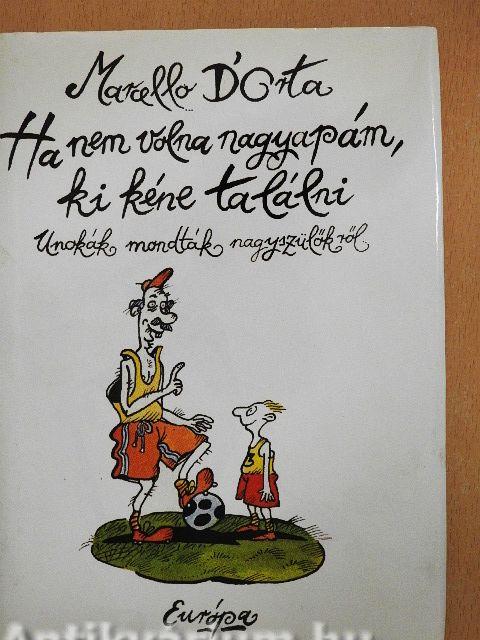 Marcello D'Orta
Ha nem volna nagyapám,
ki kéne találni
Unokák mondták nagyszülőkről
3
Európa
Antikvárium.hu